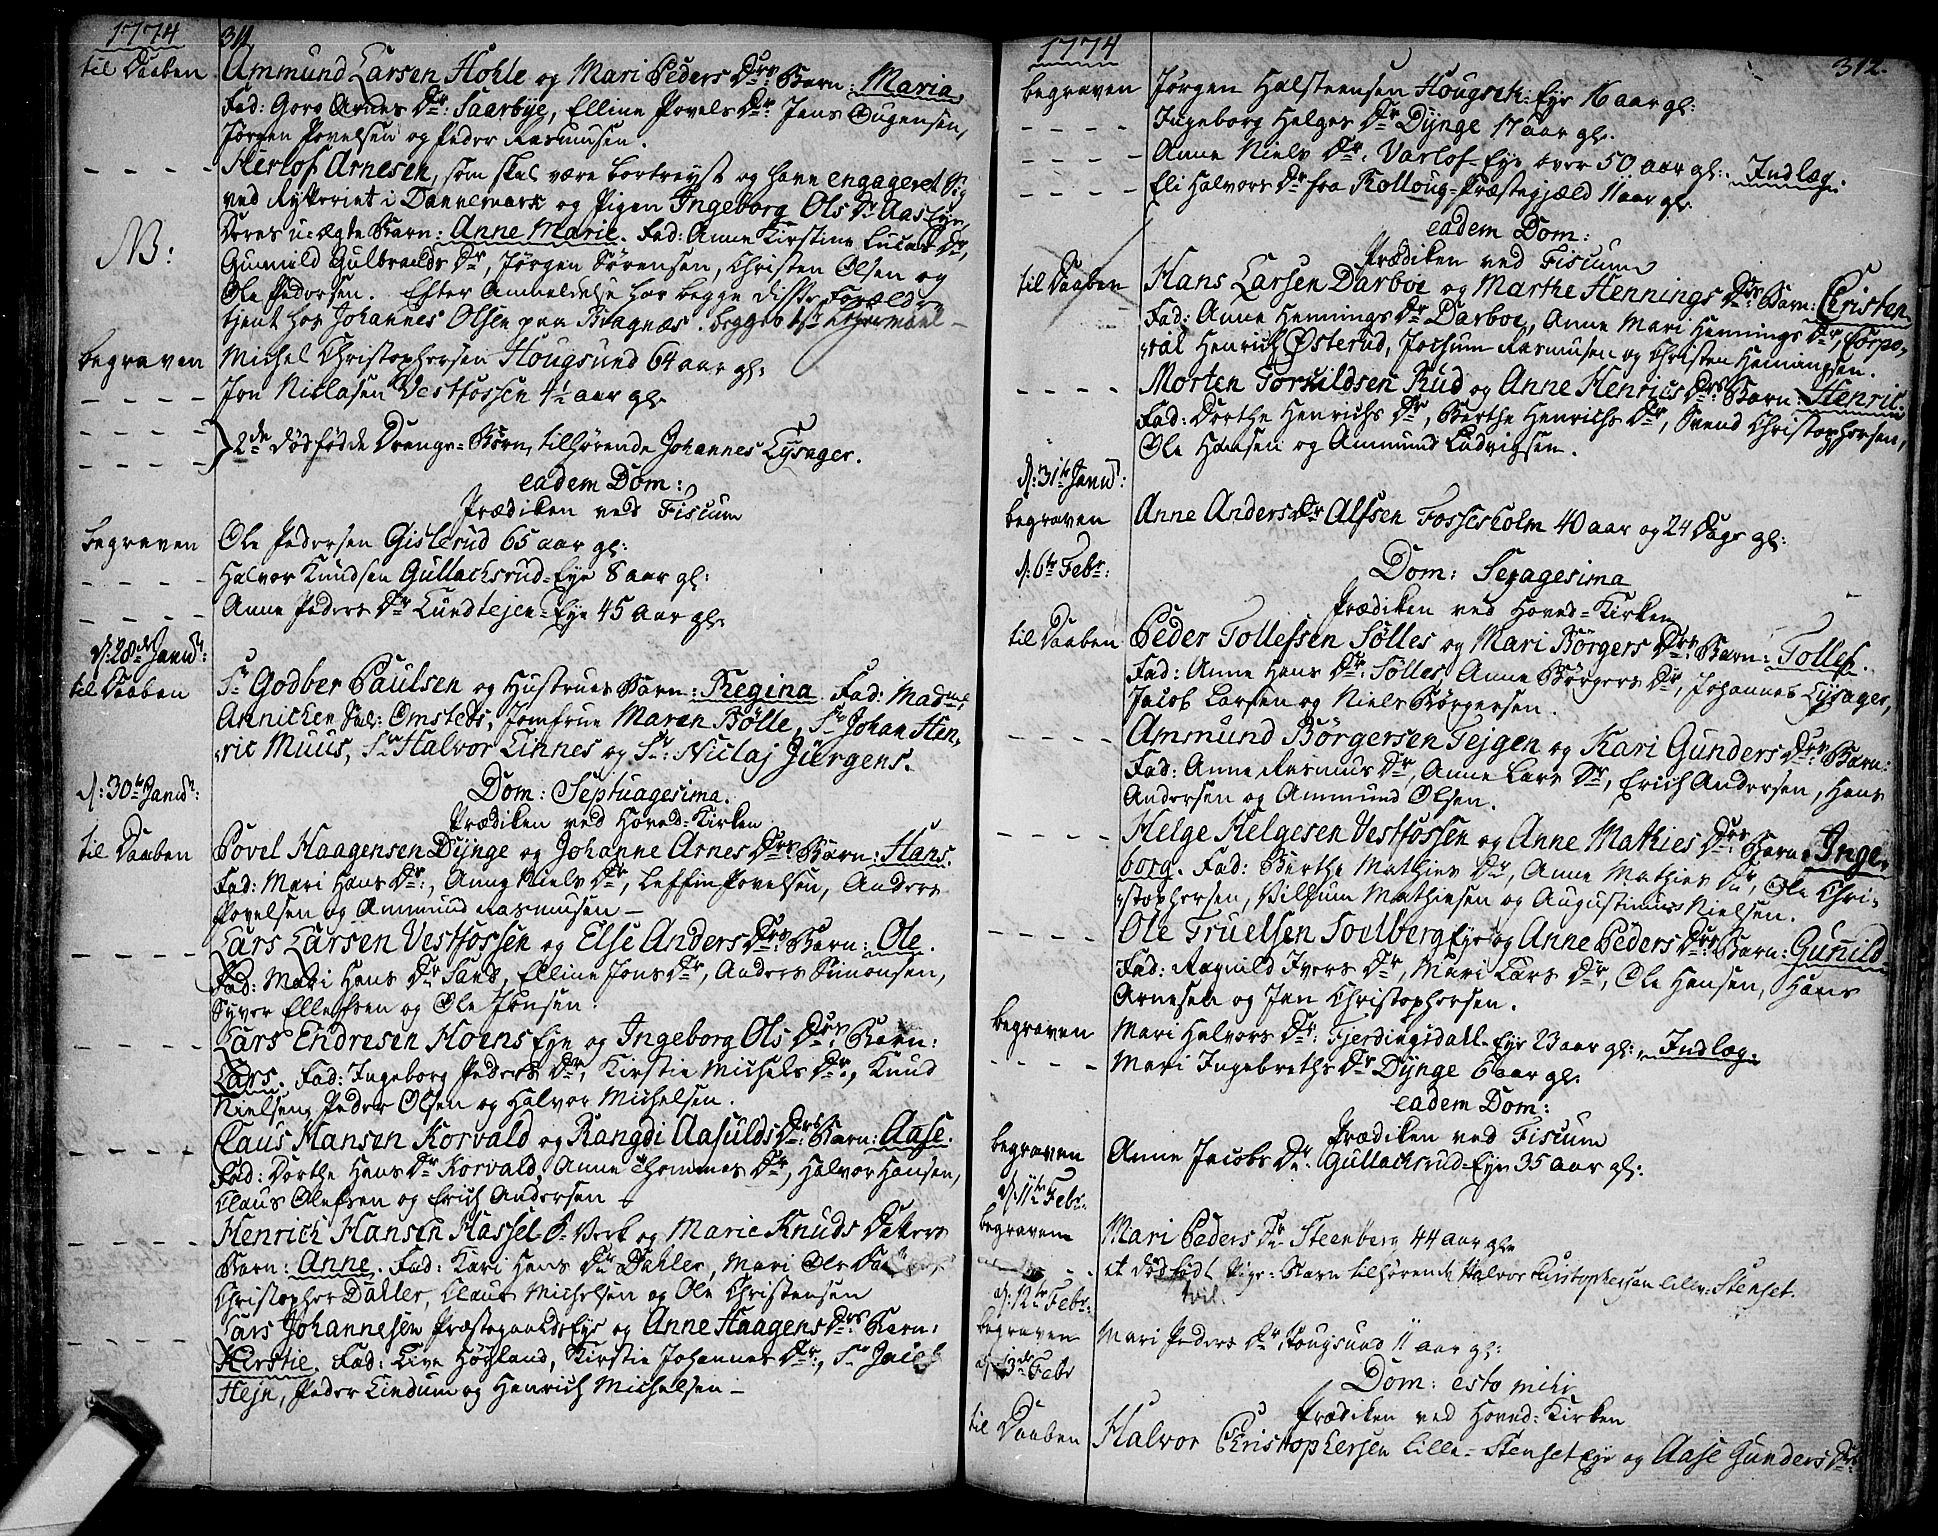 1774
311
til Daaben Ammund Larsen Hohle og Mari Peders Dtrs Barn: Maria
Fad: Goro Arnes Dr: Saarbye, Elline Povels Dr: Jens
Jørgen Povelsen og Peder Rasmusen.
- - - - Herlof Arnesen, som skal være bortreyst og have engageret sig
ved Rytteriet i Dannemark og Pigen Ingeborg Ols Dr Aas Eye
NB: Deres u-ægte Barn: Anne Marie. Fad: Anne Kirstine Lucas Dr,
Gunnild Gulbrands Dr, Jørgen Sørensen, Christen Olsen og
Ole Pedersen. Efter Anmeldelse har begge disse Forældre
tjent hos Johannes Olsen paa Bragnæs. begges 1ste Lejermaal -
begraven Michel Christophersen Hougsund 64 aar gl:
- - - - Jon Niclasen Vestfossen 4½ aar gl.
- - - -
- - - - } 2de dødfødde Drenge-Børn, tilhørende Johannes Lysager.
eadem Dom:
Prædiken ved Fiscum
begraven Ole Pedersen Gislerud 65 aar gl:
- - - - Halvor Knudsen Gullachsrud-Eye 8 aar gl:
- - - - Anne Peders Dr Lundtejen-Eye 45 aar gl.
d: 28de Janu:
til Daaben Sr Godber Paulsen og Hustrues Barn: Regina. Fad: Madme
Annichen Sal: Omsteds, Jomfrue Maren Bølle, Sr Johan Hen-
ric Muus, Sr Halvor Linnes og Sr: Niclaj Jürgens.
d: 30te Janu: Dom: Septuagesima.
Prædiken ved Hoved-Kirken
til Daaben Povel Haagensen Dynge og Johanne Arnes Dtrs Barn: Hans.
Fad: Mari Hans Dr:, Anne Niels Dr, Leffin Povelsen, Anders
Povelsen og Ammund Rasmusen -
- - - - Lars Larsen Vestfossen og Else Anders Dtrs Barn: Ole.
Fad: Mari Hans Dr Sand, Elline Jons Dr, Anders Simonsen,
Syver Ellefsen og Ole Jonsen:
- - - - Lars Endresen Hoens Eye og Ingeborg Ols Dtrs Barn:
Lars. Fad: Ingeborg Peders Dr, Kirstie Michels Dr:, Knud
Nielsen, Peder Olsen og Halvor Michelsen.
- - - - Claus Hansen Korvald og Rangdi Aasulds Dtrs Barn: Aase.
Fad: Dorthe Hans Dr Korvald, Anne Thommes Dr, Halvor Hansen,
Claus Olefsen og Erich Andersen -
- - - - Henrich Hansen Hassel-Verk og Marie Knuds Datters
Barn: Anne. Fad: Kari Hans Dr Dahler, Mari Ols
Christopher Dahler, Claus Michelsen og Ole Christensen
- - - - Lars Johannesen Præstegaards Eye og Anne Haagens Dtrs Barn:
Kirstie. Fad: Live Høgland, Kirstie Johannes Dr:, Sr Jacob
Hejn, Peder Lindum og Henrich Michelsen -
1774
312.
begraven Jørgen Halsteensen Hougseh: Eye 16 aar gl:
- - - - Ingeborg Helges Dr Dynge 17 aar gl.
- - - - Anne Niels Dr: Varlof-Eye over 50 aar gl:. Indlæg.
- - - - Eli Halvors Dr fra Rolloug-Præstegjæld 11 aar gl.
eadem Dom:
Prædiken ved Fiscum
til Daaben Hans Larsen Darboe og Marthe Hennings Dtrs Barn: Christen
Fad: Anne Hennings Dr Darboe, Anne Mari Hennings Dr, Corpo-
ral Henrich Østerud, Jochum Rasmusen og Christen Henningsen.
- - - - Morten Torkildsen Rud og Anne Henrics Dtrs Barn: Henric.
Fad: Dorthe Henrichs Dr, Berthe Henrichs Dr, Svend Christophersen,
Ole Hansen og Ammund Ludvigsen.
d: 31te Janu:
begraven Anne Anders Dr Alfsen Fossesholm 40 aar og 24 Dage gl:
d: 6te Febr: Dom: Sexagesima
Prædiken ved Hoved-Kirken
til Daaben Peder Tollefsen Sølles og Mari Børgers Dtrs Barn: Tollef.
Fad: Anne Hans Dr Sølles, Anne Børgers Dr, Johannes Lysager,
Jacob Larsen og Niels Børgersen.
- - - - Ammund Børgersen Tejgen og Kari Gunders Dtrs Barn:
Fad: Anne Rasmus Dr, Anne Lars Dr, Erich Andersen, Hans
Andersen og Ammund Olsen.
- - - - Helge Helgesen Vestfossen og Anne Mathies Dtrs Barn: Inge-
borg. Fad: Berthe Mathies Dr, Anne Mathies Dr, Ole Chri-
stophersen, Villum Mathiesen og Augustinus Nielsen.
- - - - Ole Truelsen Soelberg Eye og Anne Peders Dtrs Barn: Gunild
Fad: Ragnild Ivers Dr, Mari Lars Dr, Ole Hansen, Hans
Arnesen og Jan Christophersen.
begraven Mari Halvors Dr: Fjerdingsdall-Eye 23 aar gl:, Indlæg:
- - - Mari Ingebreths Dr Dynge 6 aar gl:
eadem Dom:
Prædiken ved Fiscum
begraven Anne Jacobs Dr. Gullachsrud-Eye 35 aar gl:
d: 11te Febr:
begraven Mari Peders Dr Steenberg 44 aar gl.
- - et dødfødt Pige-Barn tilhørende Halvor Christophersen Lille-Stenset.
tvil.
d: 12te Febr:
begraven Mari Peders Dr. Hougsund 11 aar gl:
d: 13de Febr Dom: esto mihi
Prædiken ved Hoved-Kirken
til Daaben Halvor Christophersen Lille-Stenset Eye og Aase Gunders Dtrs